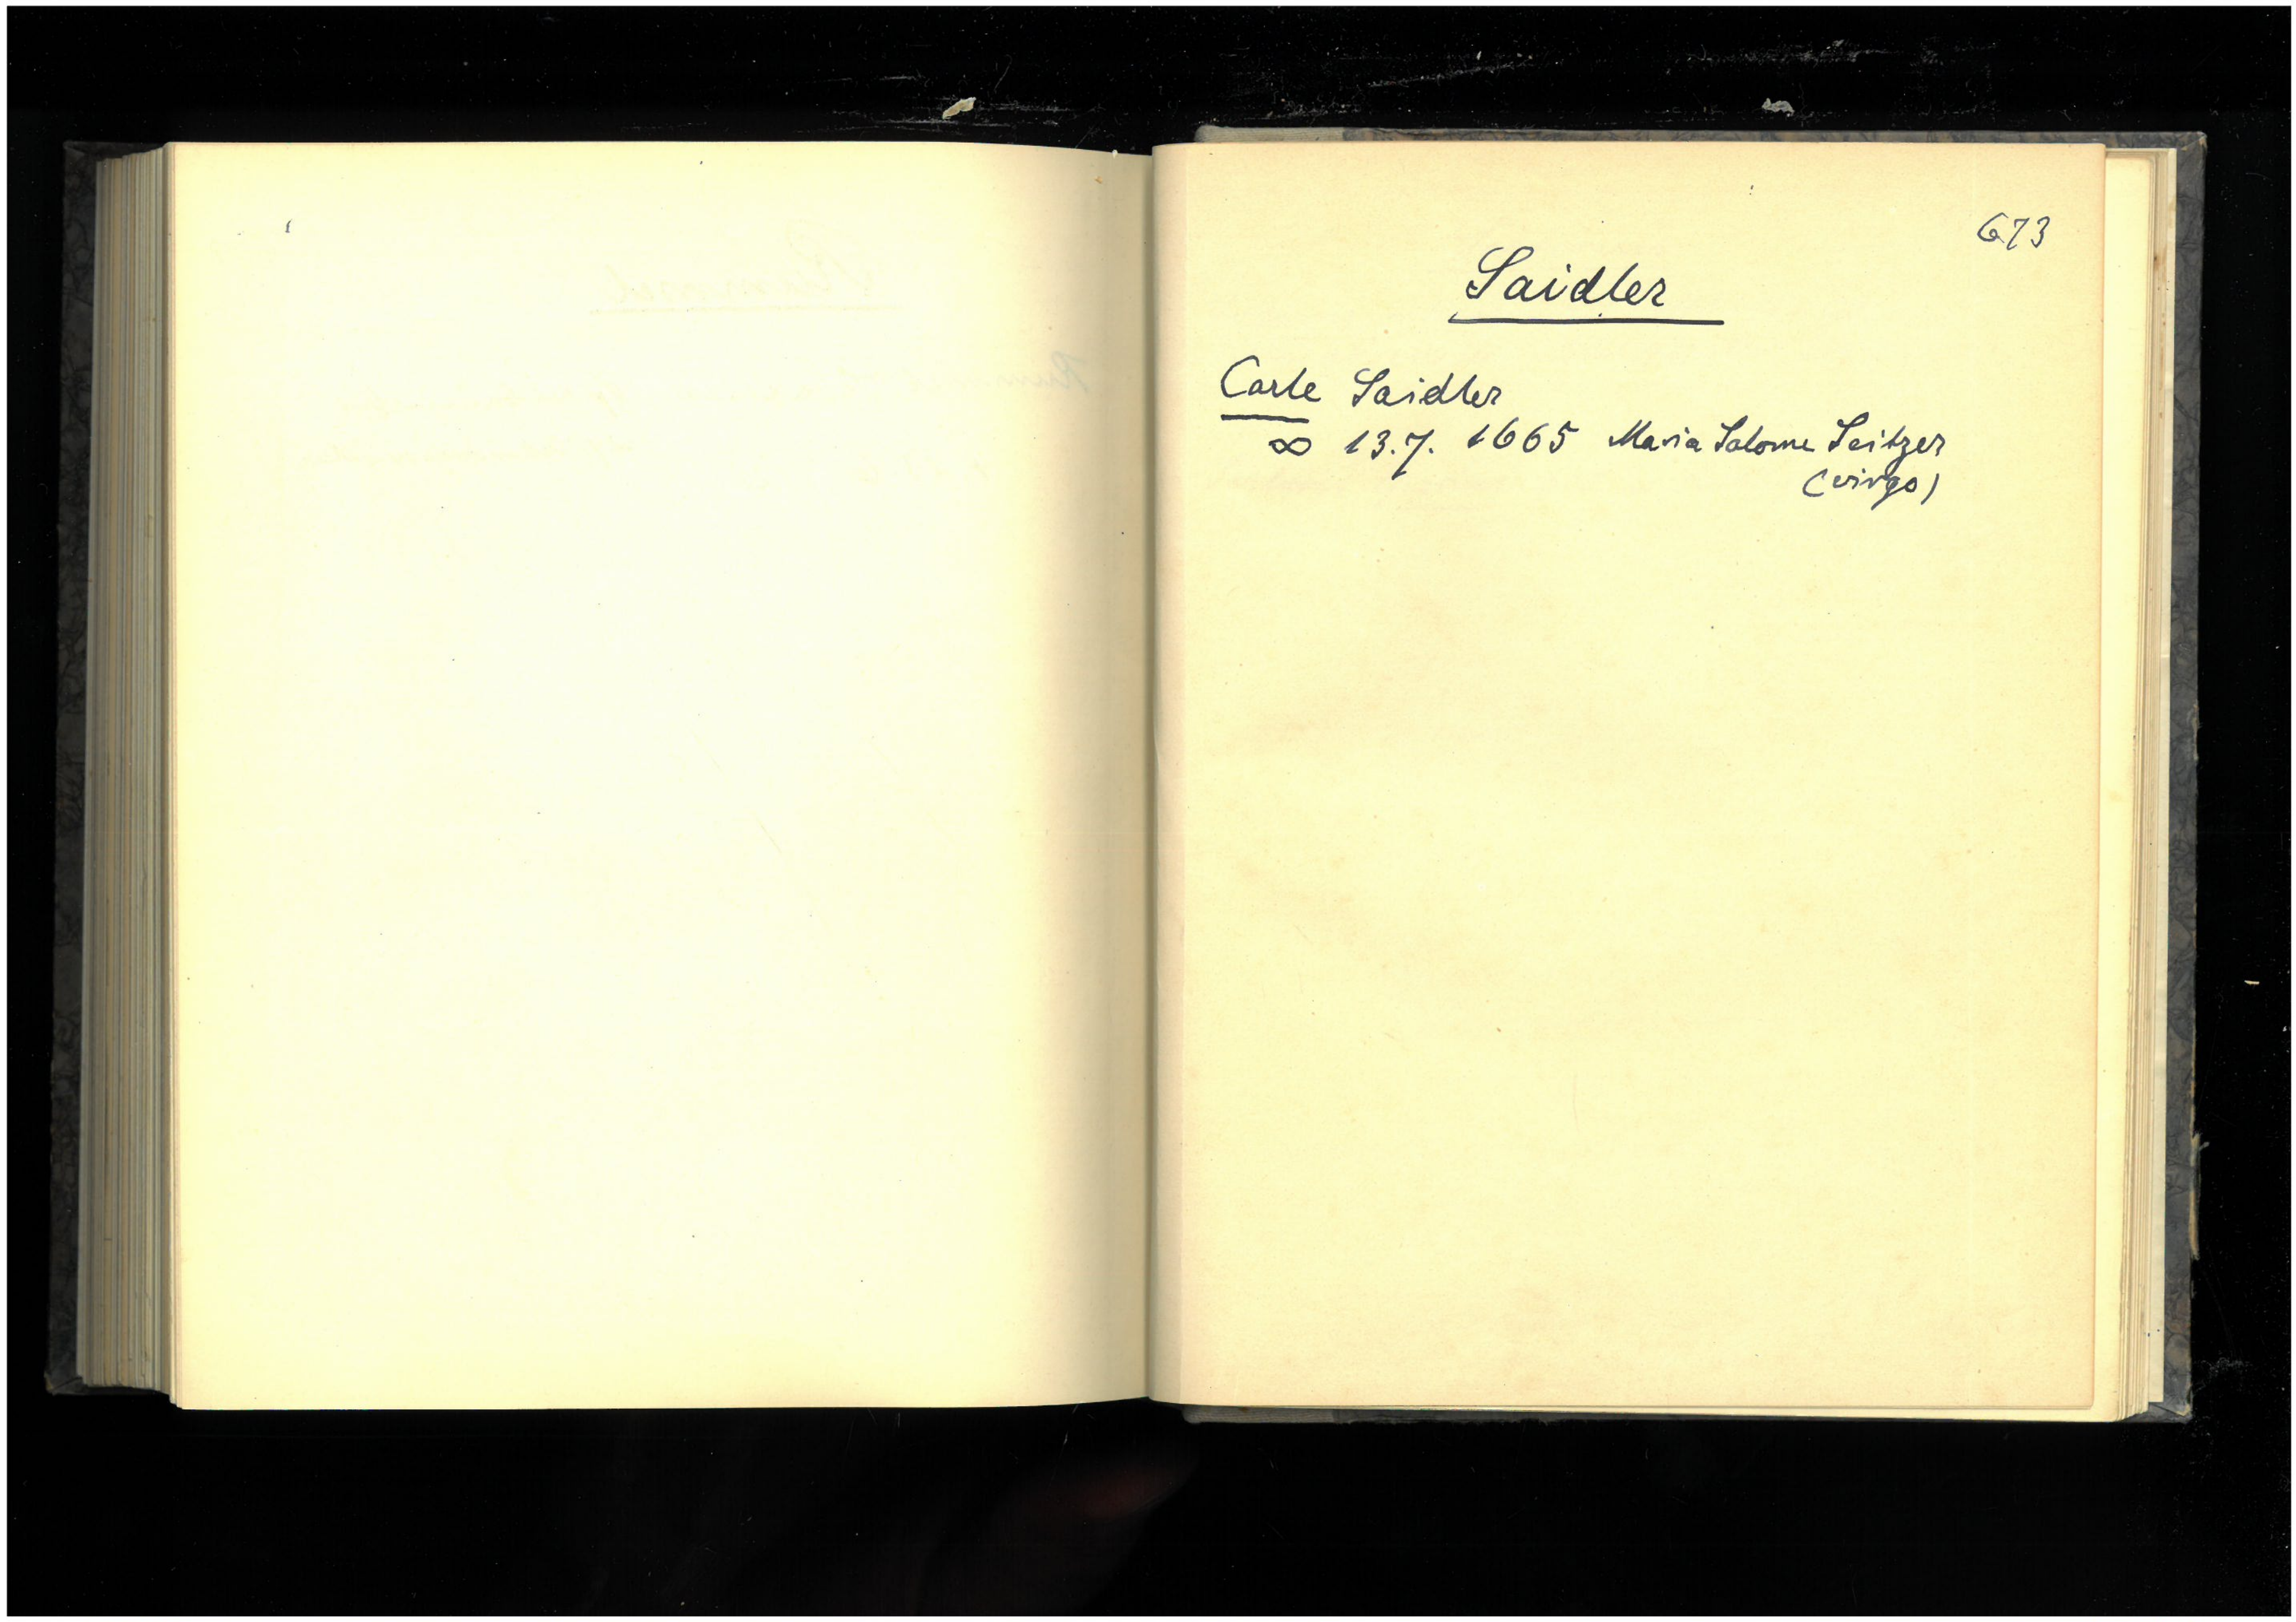 673
Saidler
Carle Saidler
∞ 13.7. 1665 Maria Salome Seitzer
(virgo)